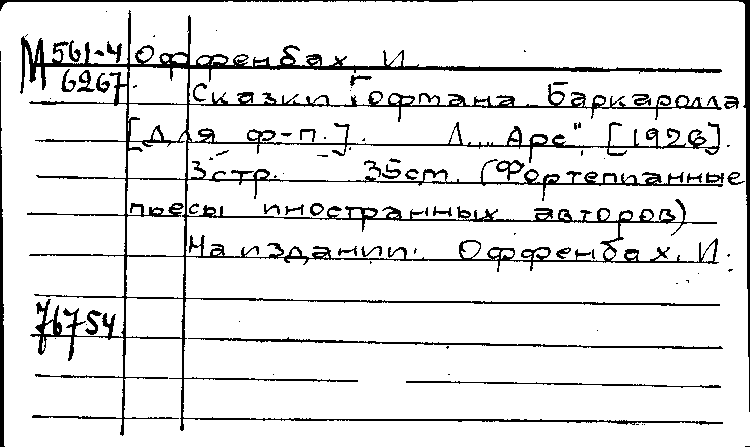 М 561-4 Оффенбах, И.
6267.
Сказки Гофмана. Баркаролла
[для ф-п.]. Л., „Арс", [1926].
3 стр. 35 ст. (Фортепианные
пьесы иностранных авторов)
На издании: Оффенбах, И.
76754